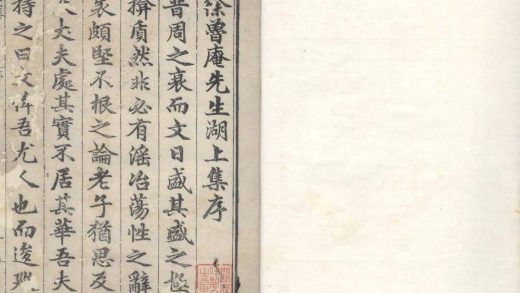 徐魯庵先生湖上集序
昔周之衰而文日盛其盛之極
揜質然非必有滛冶蕩性之辭
裳頗堅不根之論老子猶思反
大丈夫處其實不居其華吾夫
持之曰文俾吾尤人也而逡